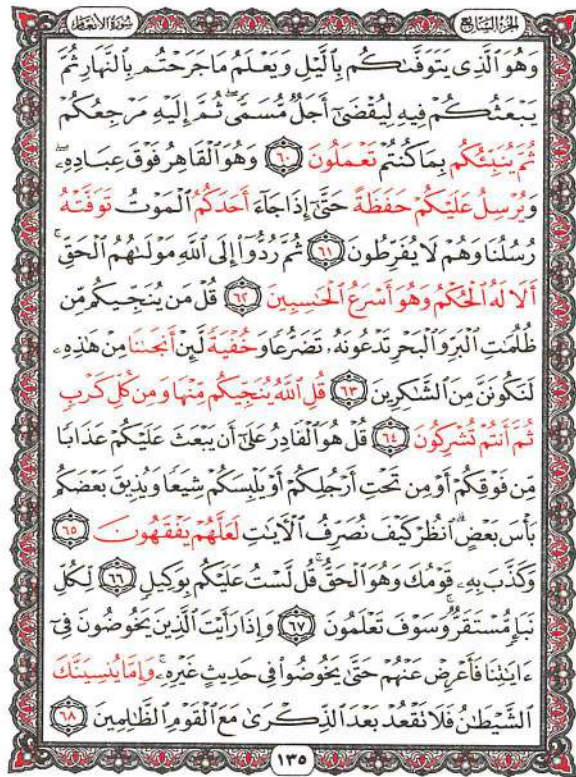 سورة الأنعام
الجزء السابع
وَهُوَ ٱلَّذِى يَتَوَفَّىٰكُم بِٱلَّيْلِ وَيَعْلَمُ مَا جَرَحْتُم بِٱلنَّهَارِ ثُمَّ
يَبْعَثُكُمْ فِيهِ لِيُقْضَىٰٓ أَجَلٌ مُّسَمًّى ۖ ثُمَّ إِلَيْهِ مَرْجِعُكُمْ
ثُمَّ يُنَبِّئُكُم بِمَا كُنتُمْ تَعْمَلُونَ ٦٠ وَهُوَ ٱلْقَاهِرُ فَوْقَ عِبَادِهِۦ ۖ
وَيُرْسِلُ عَلَيْكُمْ حَفَظَةً حَتَّىٰٓ إِذَا جَآءَ أَحَدَكُمُ ٱلْمَوْتُ تَوَفَّتْهُ
رُسُلُنَا وَهُمْ لَا يُفَرِّطُونَ ٦١ ثُمَّ رُدُّوٓا۟ إِلَى ٱللَّهِ مَوْلَىٰهُمُ ٱلْحَقِّ ۚ
أَلَا لَهُ ٱلْحُكْمُ وَهُوَ أَسْرَعُ ٱلْحَٰسِبِينَ ٦٢ قُلْ مَن يُنَجِّيكُم مِّن
ظُلُمَٰتِ ٱلْبَرِّ وَٱلْبَحْرِ تَدْعُونَهُۥ تَضَرُّعًا وَخُفْيَةً لَّئِنْ أَنجَىٰنَا مِنْ هَٰذِهِۦ
لَنَكُونَنَّ مِنَ ٱلشَّٰكِرِينَ ٦٣ قُلِ ٱللَّهُ يُنَجِّيكُم مِّنْهَا وَمِن كُلِّ كَرْبٍ
ثُمَّ أَنتُمْ تُشْرِكُونَ ٦٤ قُلْ هُوَ ٱلْقَادِرُ عَلَىٰٓ أَن يَبْعَثَ عَلَيْكُمْ عَذَابًا
مِّن فَوْقِكُمْ أَوْ مِن تَحْتِ أَرْجُلِكُمْ أَوْ يَلْبِسَكُمْ شِيَعًا وَيُذِيقَ بَعْضَكُم
بَأْسَ بَعْضٍ ۗ ٱنظُرْ كَيْفَ نُصَرِّفُ ٱلْءَايَٰتِ لَعَلَّهُمْ يَفْقَهُونَ ٦٥
وَكَذَّبَ بِهِۦ قَوْمُكَ وَهُوَ ٱلْحَقُّ ۚ قُل لَّسْتُ عَلَيْكُم بِوَكِيلٍ ٦٦ لِّكُلِّ
نَبَإٍ مُّسْتَقَرٌّ ۚ وَسَوْفَ تَعْلَمُونَ ٦٧ وَإِذَا رَأَيْتَ ٱلَّذِينَ يَخُوضُونَ فِىٓ
ءَايَٰتِنَا فَأَعْرِضْ عَنْهُمْ حَتَّىٰ يَخُوضُوا۟ فِى حَدِيثٍ غَيْرِهِۦ ۚ وَإِمَّا يُنسِيَنَّكَ
ٱلشَّيْطَٰنُ فَلَا تَقْعُدْ بَعْدَ ٱلذِّكْرَىٰ مَعَ ٱلْقَوْمِ ٱلظَّٰلِمِينَ ٦٨
١٣٥